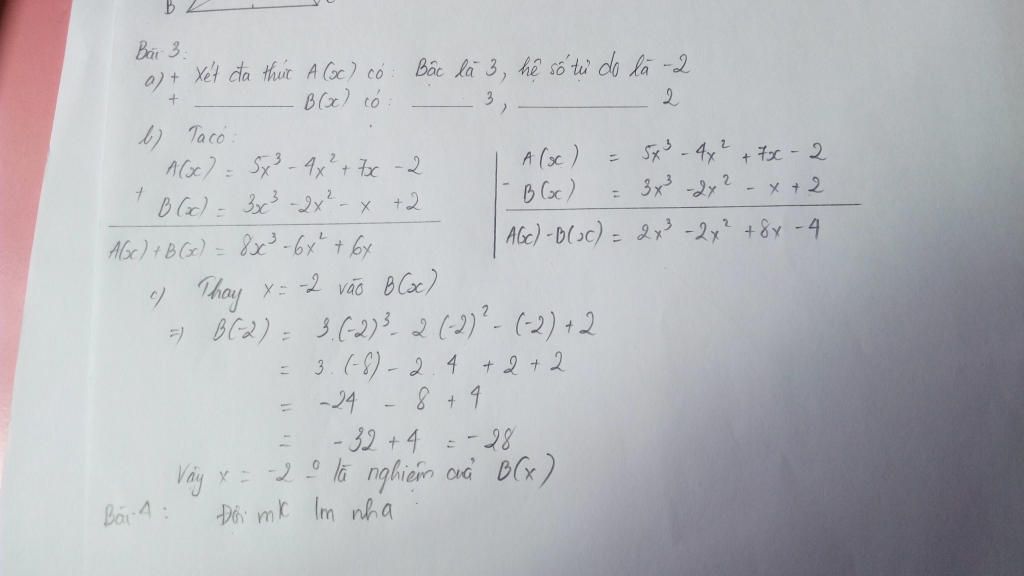 B C
Bài 3:
a) + Xét đa thức A(x) có: Bậc là 3, hệ số tự do là -2
+ ______ B(x) có: ____ 3, ______ 2
b) Ta có:
A(x) = 5x³ - 4x² + 7x - 2
+ B(x) = 3x³ - 2x² - x + 2
A(x) + B(x) = 8x³ - 6x² + 6x
A(x) = 5x³ - 4x² + 7x - 2
- B(x) = 3x³ - 2x² - x + 2
A(x) - B(x) = 2x³ - 2x² + 8x - 4
c) Thay x = -2 vào B(x)
⇒ B(-2) = 3.(-2)³ - 2(-2)² - (-2) + 2
= 3.(-8) - 2.4 + 2 + 2
= -24 - 8 + 4
= -32 + 4 = -28
Vậy x = -2 là nghiệm của B(x)
Bài 4: Đợi mk lm nha